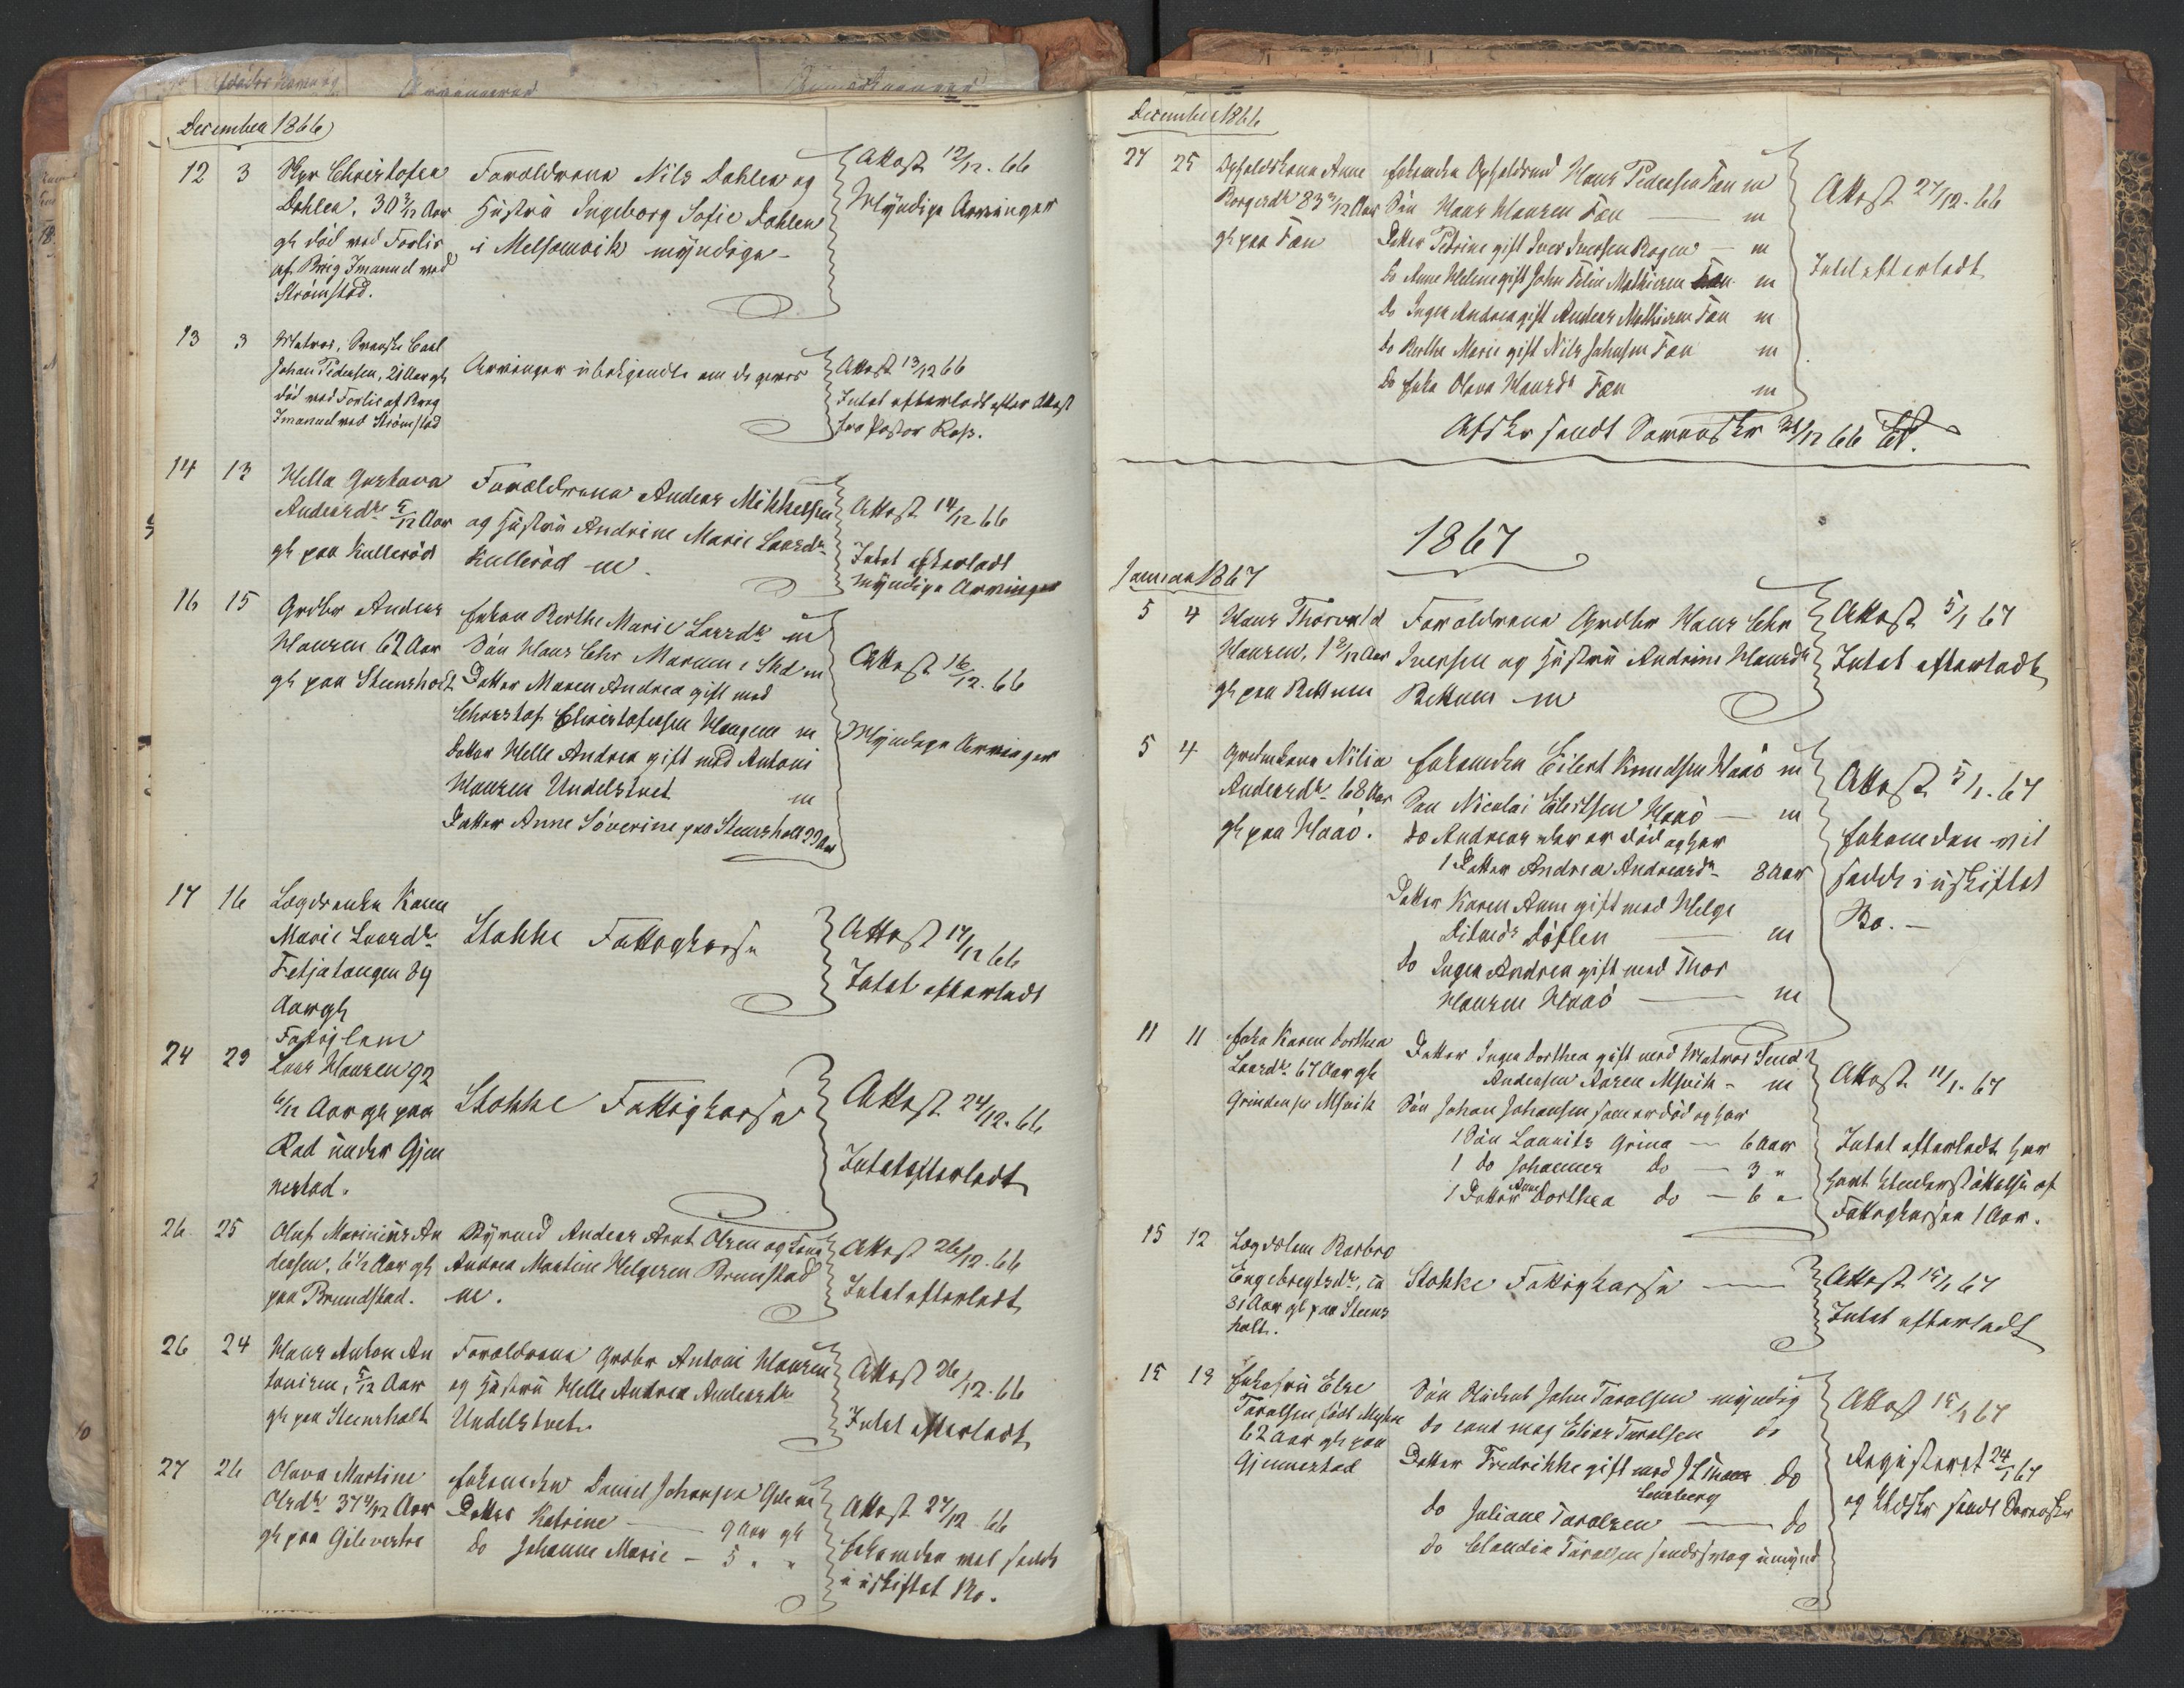 December 1866
12 3 Skpr Christofer
Dahlen, 30 9/12 Aar
gl død ved Forlis
af Brig Imanuel ved
Strømstad.
Foraldrene Nils Dahlen og
Hustrü Ingeborg Sofie Dahlen
i Melsomvik myndige
Attest 12/12. 66
Myndige Arvinger
13 3 Matros, Svenske Carl
Johan Pedersen, 21 Aar gl
død ved Forlis af Brig
Imanuel ved Strømstad
Arvinger übekjendte om de gives
Attest 13/12 66
Intet efterladt efter Attest
fra Pastor Ross.
14 13 Hella Gustava
Andersdr 5/12 Aar
gl paa Kullerød
Foraldrene Anders Mikkelsen
og Hüstrü Andrine Marie Larsdr
Kullerød m.
Attest 14/12 66
Intet efterladt
myndige Arvinger
16 15 Grdbr Anders
Hansen 62 Aar
gl paa Steensholt
Enken Berthe Marie Larsdr m
Søn Hans Chr Marum i Shd m
Datter Maren Andrea gift med
Christof Christofersen Haugen m
Datter Helle Andrea gift med Antoni
Hansen Undelstvet m
Datter Anne Søverine paa Steensholt 22 Aar
Attest 16/12. 66
Myndige Arvinger
17 16 Lægdsenke Karen
Marie Larsdr
Fetjatangen 89
Aar gl
Stokke Fattigkasse
Attest 17/12 66
Intet efterladt
24 23 Fattiglem
Lars Hansen 92
6/12 Aar gl paa
Rød ünder Gjen
nestad.
Stokke Fattigkasse
Attest 24/12. 66
Intet efterladt
26 25 Oluf Marinius An
dersen, 6 1/2 Aar gl
paa Brundstad.
Rymd Anders Arnt Olsen og Kone
Andrea Martine Helgesen Brunstad
m.
Attest 26/12. 66
Intet efterladt
26 24 Hans Anton An
tonisen, 5/12 Aar
gl paa Steensholt
Foraldrene Grdbr Antoni Hansen
og Hüstrü Helle Andrea Andersdr
Undelstvet.
Attest 26/12. 66
Intet efterladt
27 26 Olava Martine
Olsdr 37 9/12 Aar
gl paa Gilevestre
Enkemden Daniel Johansen Gile m
Datter Katrine — 9 Aar gl
do Johanne Marie — 5 " "
Attest 27/12 66
Enkemden vil sidde
i üskiftet Bo.
December 1866
27 25 Opholdskone Anne
Borgersdr 83 9/12 Aar
gl paa Fæn
Enkemden Opholdsmd Hans Pedersen Fæn m
Søn Hans Hansen Fæn — m
Datter Petrine gift Iver Iversen Bogen — m
do Anne Helene gift John Felix Mathisen Fæn m
do Inger Andrea gift Anders Mathisen Fæn m
do Berthe Marie gift Nils Johnsen Fæn m
do Enke Olava Hansdr Fæn m
Attest 27/12. 66
Intet efterladt
Afskr sendt Sorenskr 31/12 66
1867
Januar 1867
5 4 Hans Thorvald
Hansen, 1 9/12 Aar
gl paa Rettum
Foraldrene Grdbr Hans Chr
Iversen og Hüstrü Andrine Hansdr
Rettum m
Attest 5/1 67
Intet efterladt
5 4 Grdmkone Nilia
Andersdr 68 Aar
gl paa Haaø.
Enkemden Eilert Knudsen Haaø m
Søn Nicolai Eilertsen Haaø — m
do Andreas der er død og har
1 Datter Andrea Andreasdr 8 Aar
Datter Karen Anne gift med Helge
Ditmeds Løften — m
do Inger Andrea gift med Thor
Hansen Haaø — m
Attest 5/1. 67
Enkemden vil
sidde i üskiftet
Bo. —
11 11 Enke Karen Dorthea
Larsdr 67 Aar gl
Grindenpr Msvik
Datter Inger Dorthea gift med Matros Smd
Andersen Aasen Msvik — m
Søn Johan Johansen som er død og har
1 Søn Lauritz Grina — 6 Aar
1 do Johannes do — 3 "
1 Datter Anne Dorthea do — 6 "
Attest 11/1. 67
Intet efterladt har
havt Understøttelse af
Fattigkassen 1 Aar.
15 12 Lægdslem Barbro
Engebregtsdr, ca
81 Aar gl paa Steens
holt.
Stokke Fattigkasse —
Attest 15/1 67
Intet efterladt
15 12 Enkefrü Else
Tarolsen, født Myhre
62 Aar gl paa
Gjennestad
Søn Stüdent John Tarolsen myndig
do cand mag Elias Tarolsen do
Datter Fredrikke gift med J L Thaar
Lensberg do
do Juliane Tarolsen — do
do Claudia Tarolsen umynd
Attest 15/1 67
Registeret 24/1 67
og Udskr sendt Sorenskr